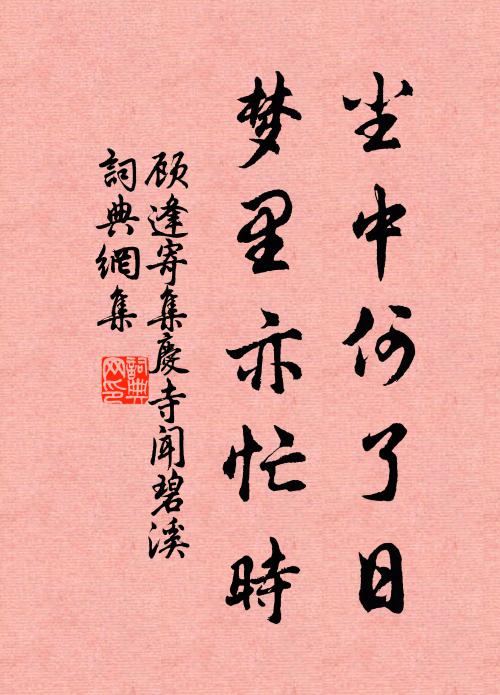 尘中何了日
梦里亦忙時
顾逢寄集慶寺闻碧溪
詞典網集
詞典网印